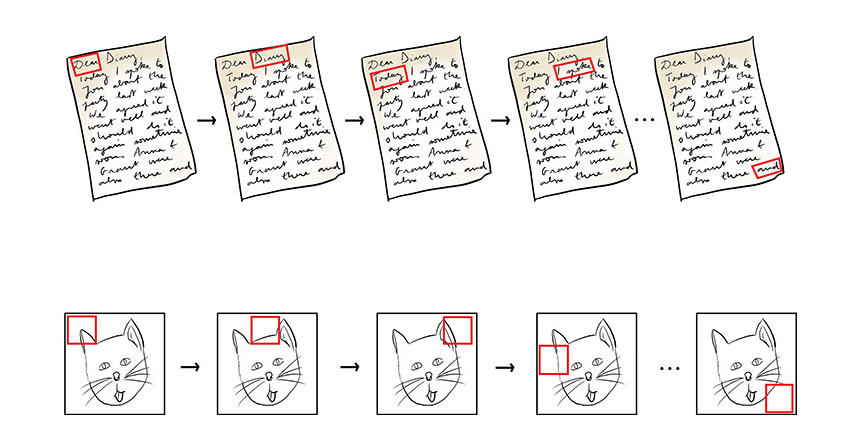 Dear Diary
Today I spoke to
Jon about the
party last week
We agreed it
went well and
should do it.
again sometime
soon. Anna &
Grant were
also there and
Dear Diary
Today I spoke to
Jon about the
party last week
We agreed it
went well and
should do it.
again sometime
soon. Anna &
Grant were
also there and
Dear Diary
Today I spoke to
Jon about the
party last week
We agreed it
went well and
should do it.
again sometime
soon. Anna &
Grant were
also there and
Dear Diary
Today I spoke to
Jon about the
party last week
We agreed it
went well and
should do it.
again sometime
soon. Anna &
Grant were
also there and
Dear Diary
Today I spoke to
Jon about the
party last week
We agreed it
went well and
should do it.
again sometime
soon. Anna &
Grant were
also there and